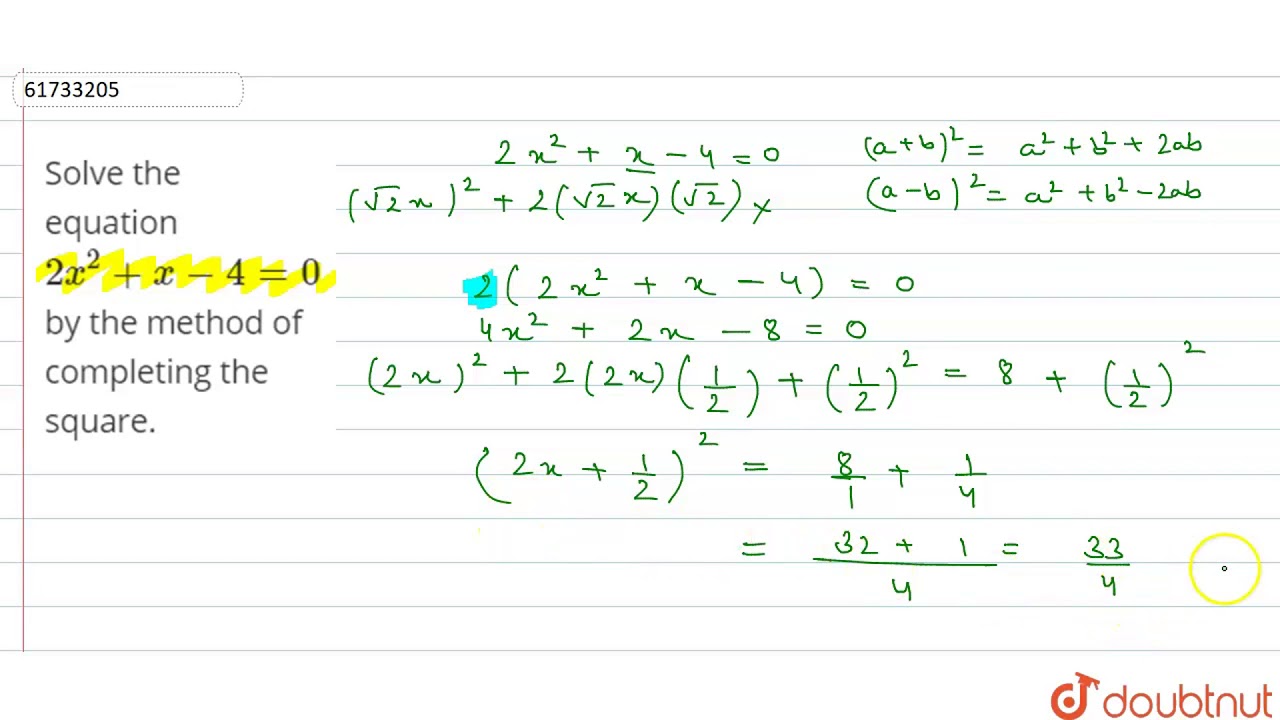 61733205
Solve the
equation
2x² + x − 4 = 0
by the method of
completing the
square.
2x² + x − 4 = 0
(a+b)² = a² + b² + 2ab
(√2x)² + 2(√2x)(√2) ×
(a−b)² = a² + b² − 2ab
2(2x² + x − 4) = 0
4x² + 2x − 8 = 0
(2x)² + 2(2x)(1/2) + (1/2)² = 8 + (1/2)²
(2x + 1/2)² = 8/1 + 1/4
= (32 + 1)/4 = 33/4
doubtnut